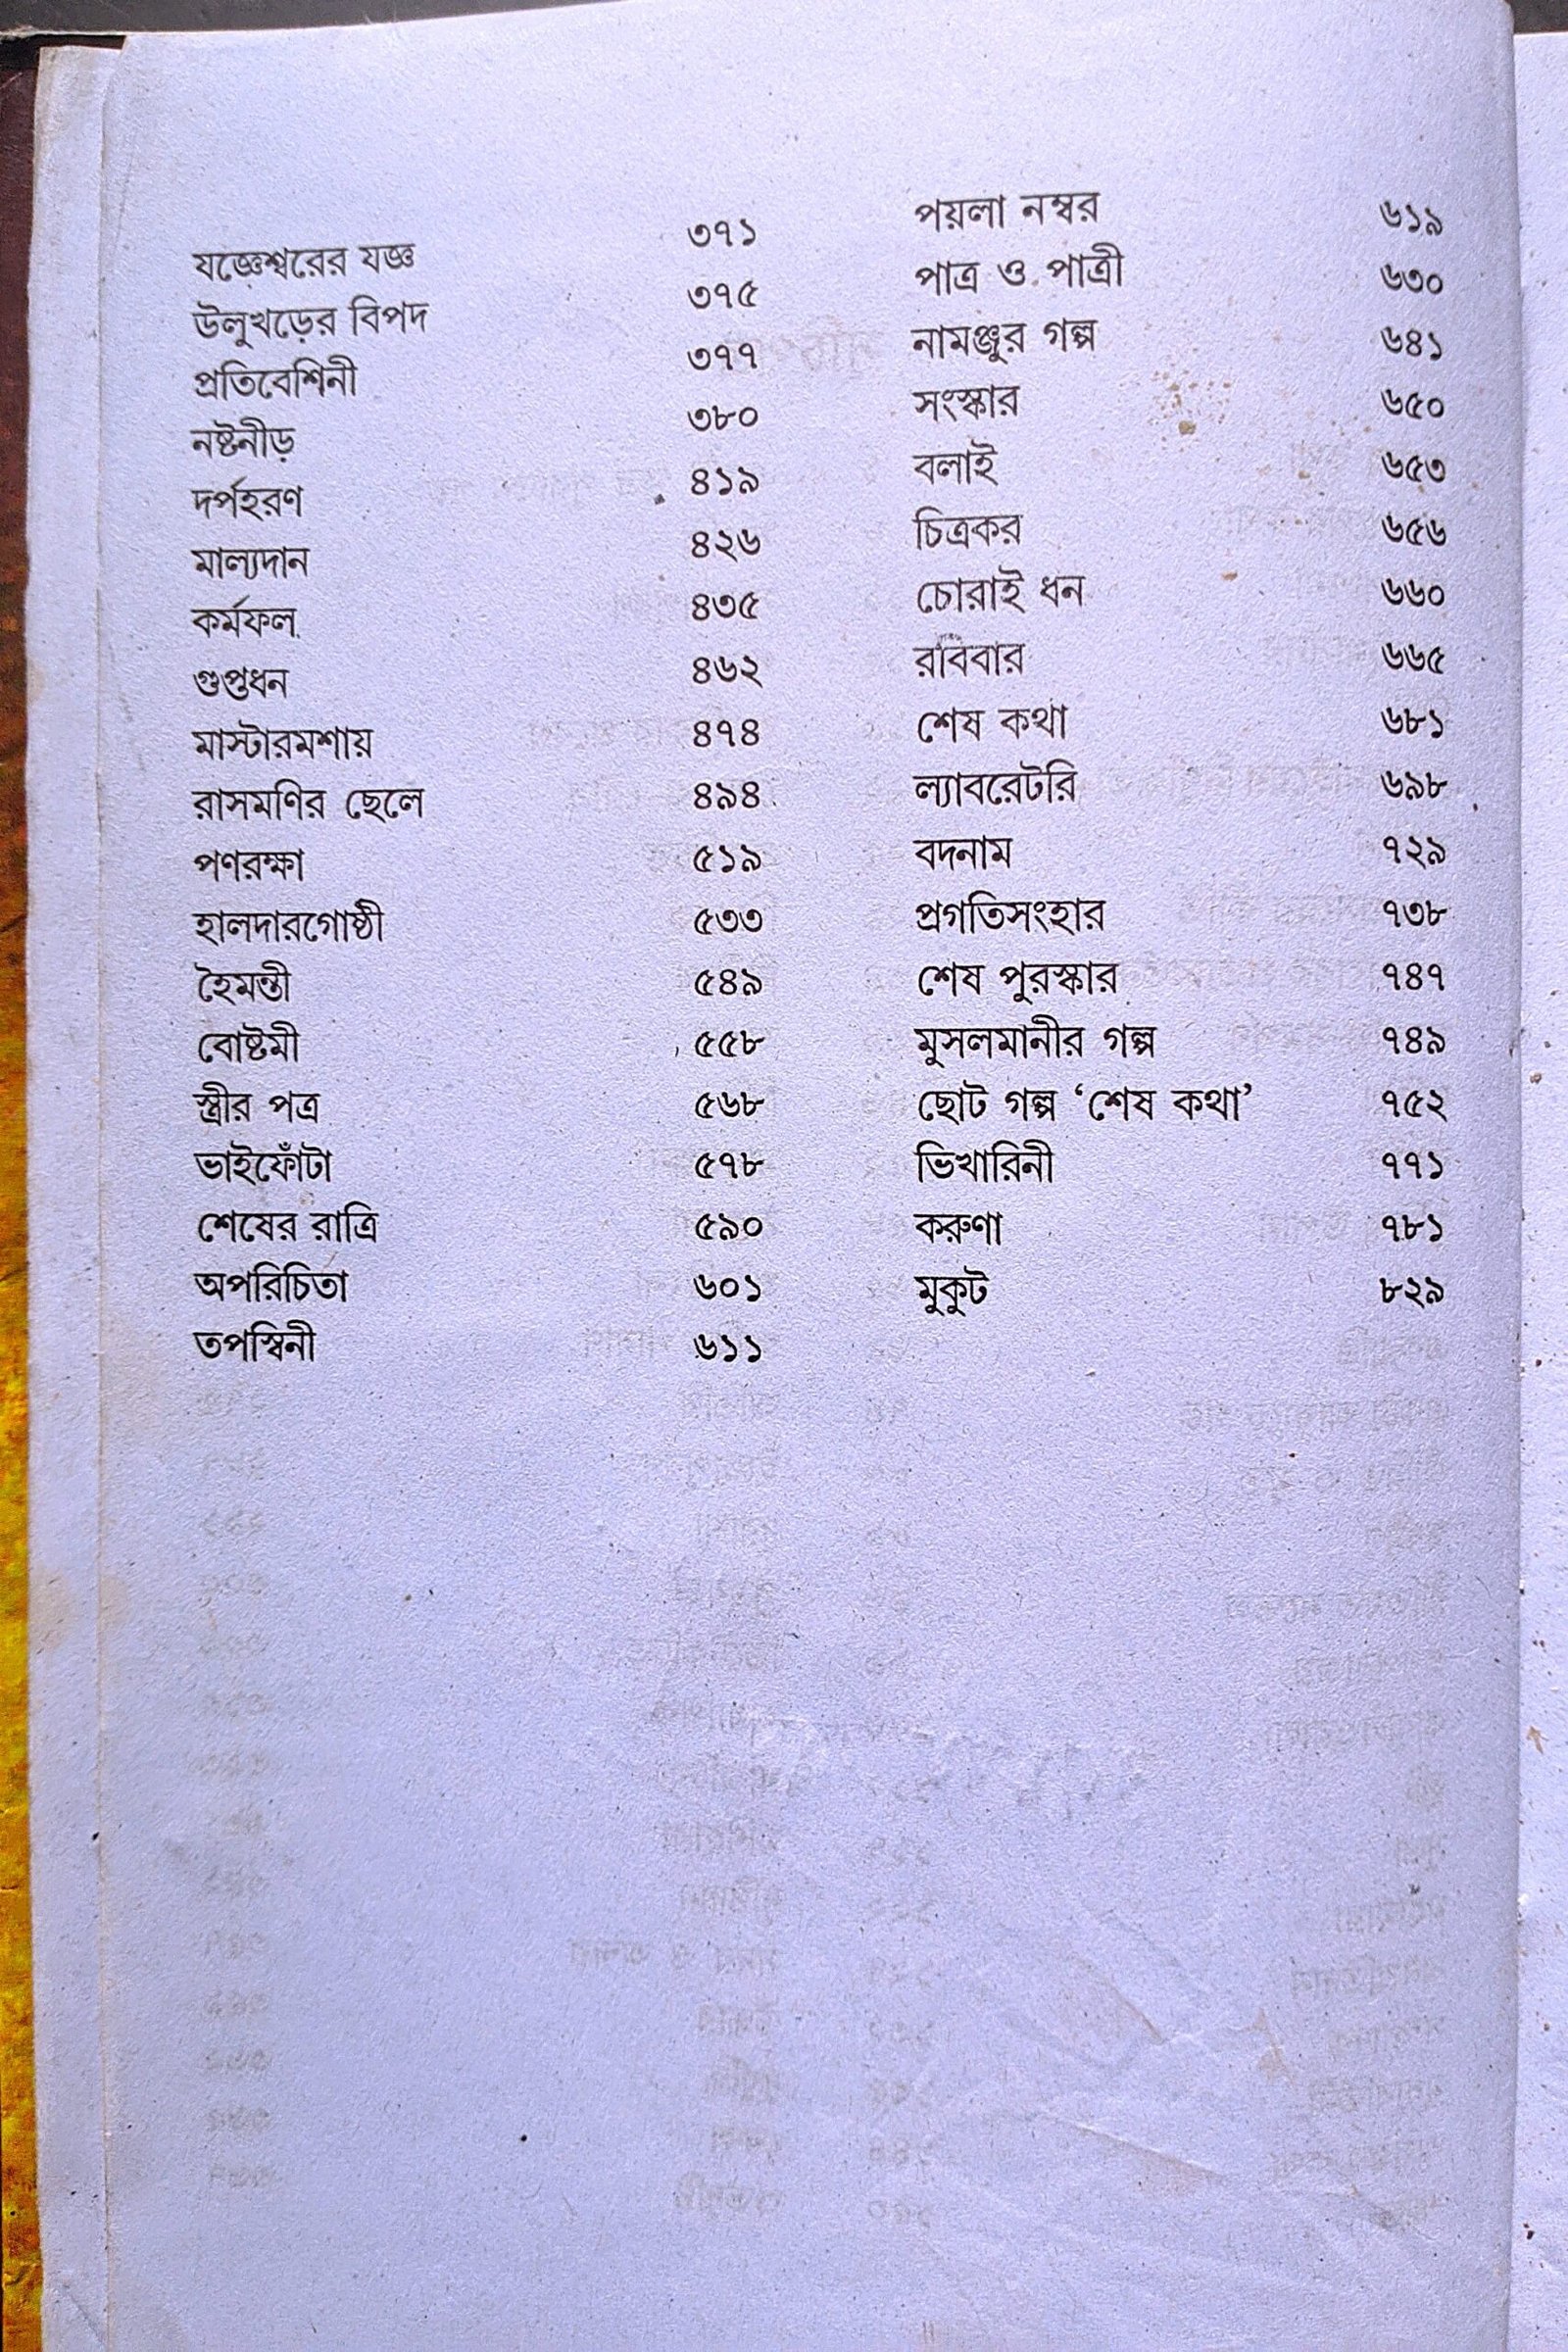 যজ্ঞেশ্বরের যজ্ঞ ৩৭১
উলুখড়ের বিপদ ৩৭৫
প্রতিবেশিনী ৩৭৭
নষ্টনীড় ৩৮০
দর্পহরণ ৪১৯
মাল্যদান ৪২৬
কর্মফল ৪৩৫
গুপ্তধন ৪৬২
মাস্টারমশায় ৪৭৪
রাসমণির ছেলে ৪৯৪
পণরক্ষা ৫১৯
হালদারগোষ্ঠী ৫৩৩
হৈমন্তী ৫৪৯
বোষ্টমী ৫৫৮
স্ত্রীর পত্র ৫৬৮
ভাইফোঁটা ৫৭৮
শেষের রাত্রি ৫৯০
অপরিচিতা ৬০১
তপস্বিনী ৬১১
পয়লা নম্বর ৬১৯
পাত্র ও পাত্রী ৬৩০
নামঞ্জুর গল্প ৬৪১
সংস্কার ৬৫০
বলাই ৬৫৩
চিত্রকর ৬৫৬
চোরাই ধন ৬৬০
রবিবার ৬৬৫
শেষ কথা ৬৮১
ল্যাবরেটরি ৬৯৮
বদনাম ৭২৯
প্রগতিসংহার ৭৩৮
শেষ পুরস্কার ৭৪৭
মুসলমানীর গল্প ৭৪৯
ছোট গল্প ‘শেষ কথা’ ৭৫২
ভিখারিনী ৭৭১
করুণা ৭৮১
মুকুট ৮২৯